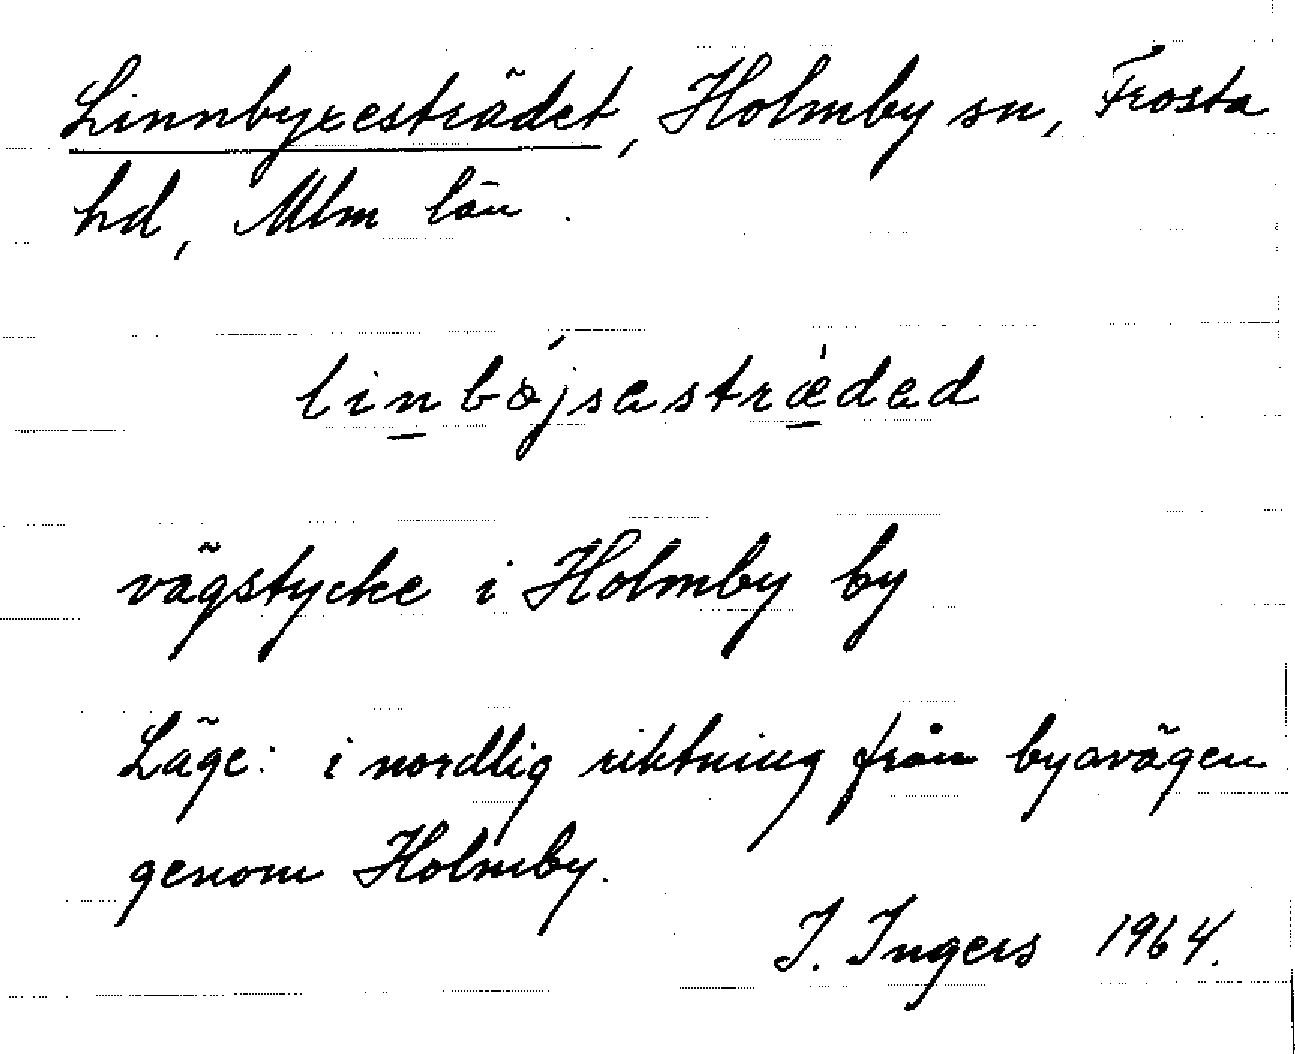 Linnbyxesträdet, Holmby sn, Frosta
hd, Mlm län.
linbøjsasträdad
vägstycke i Holmby by
Läge: i nordlig riktning från byavägen
genom Holmby.
I. Ingers 1964.